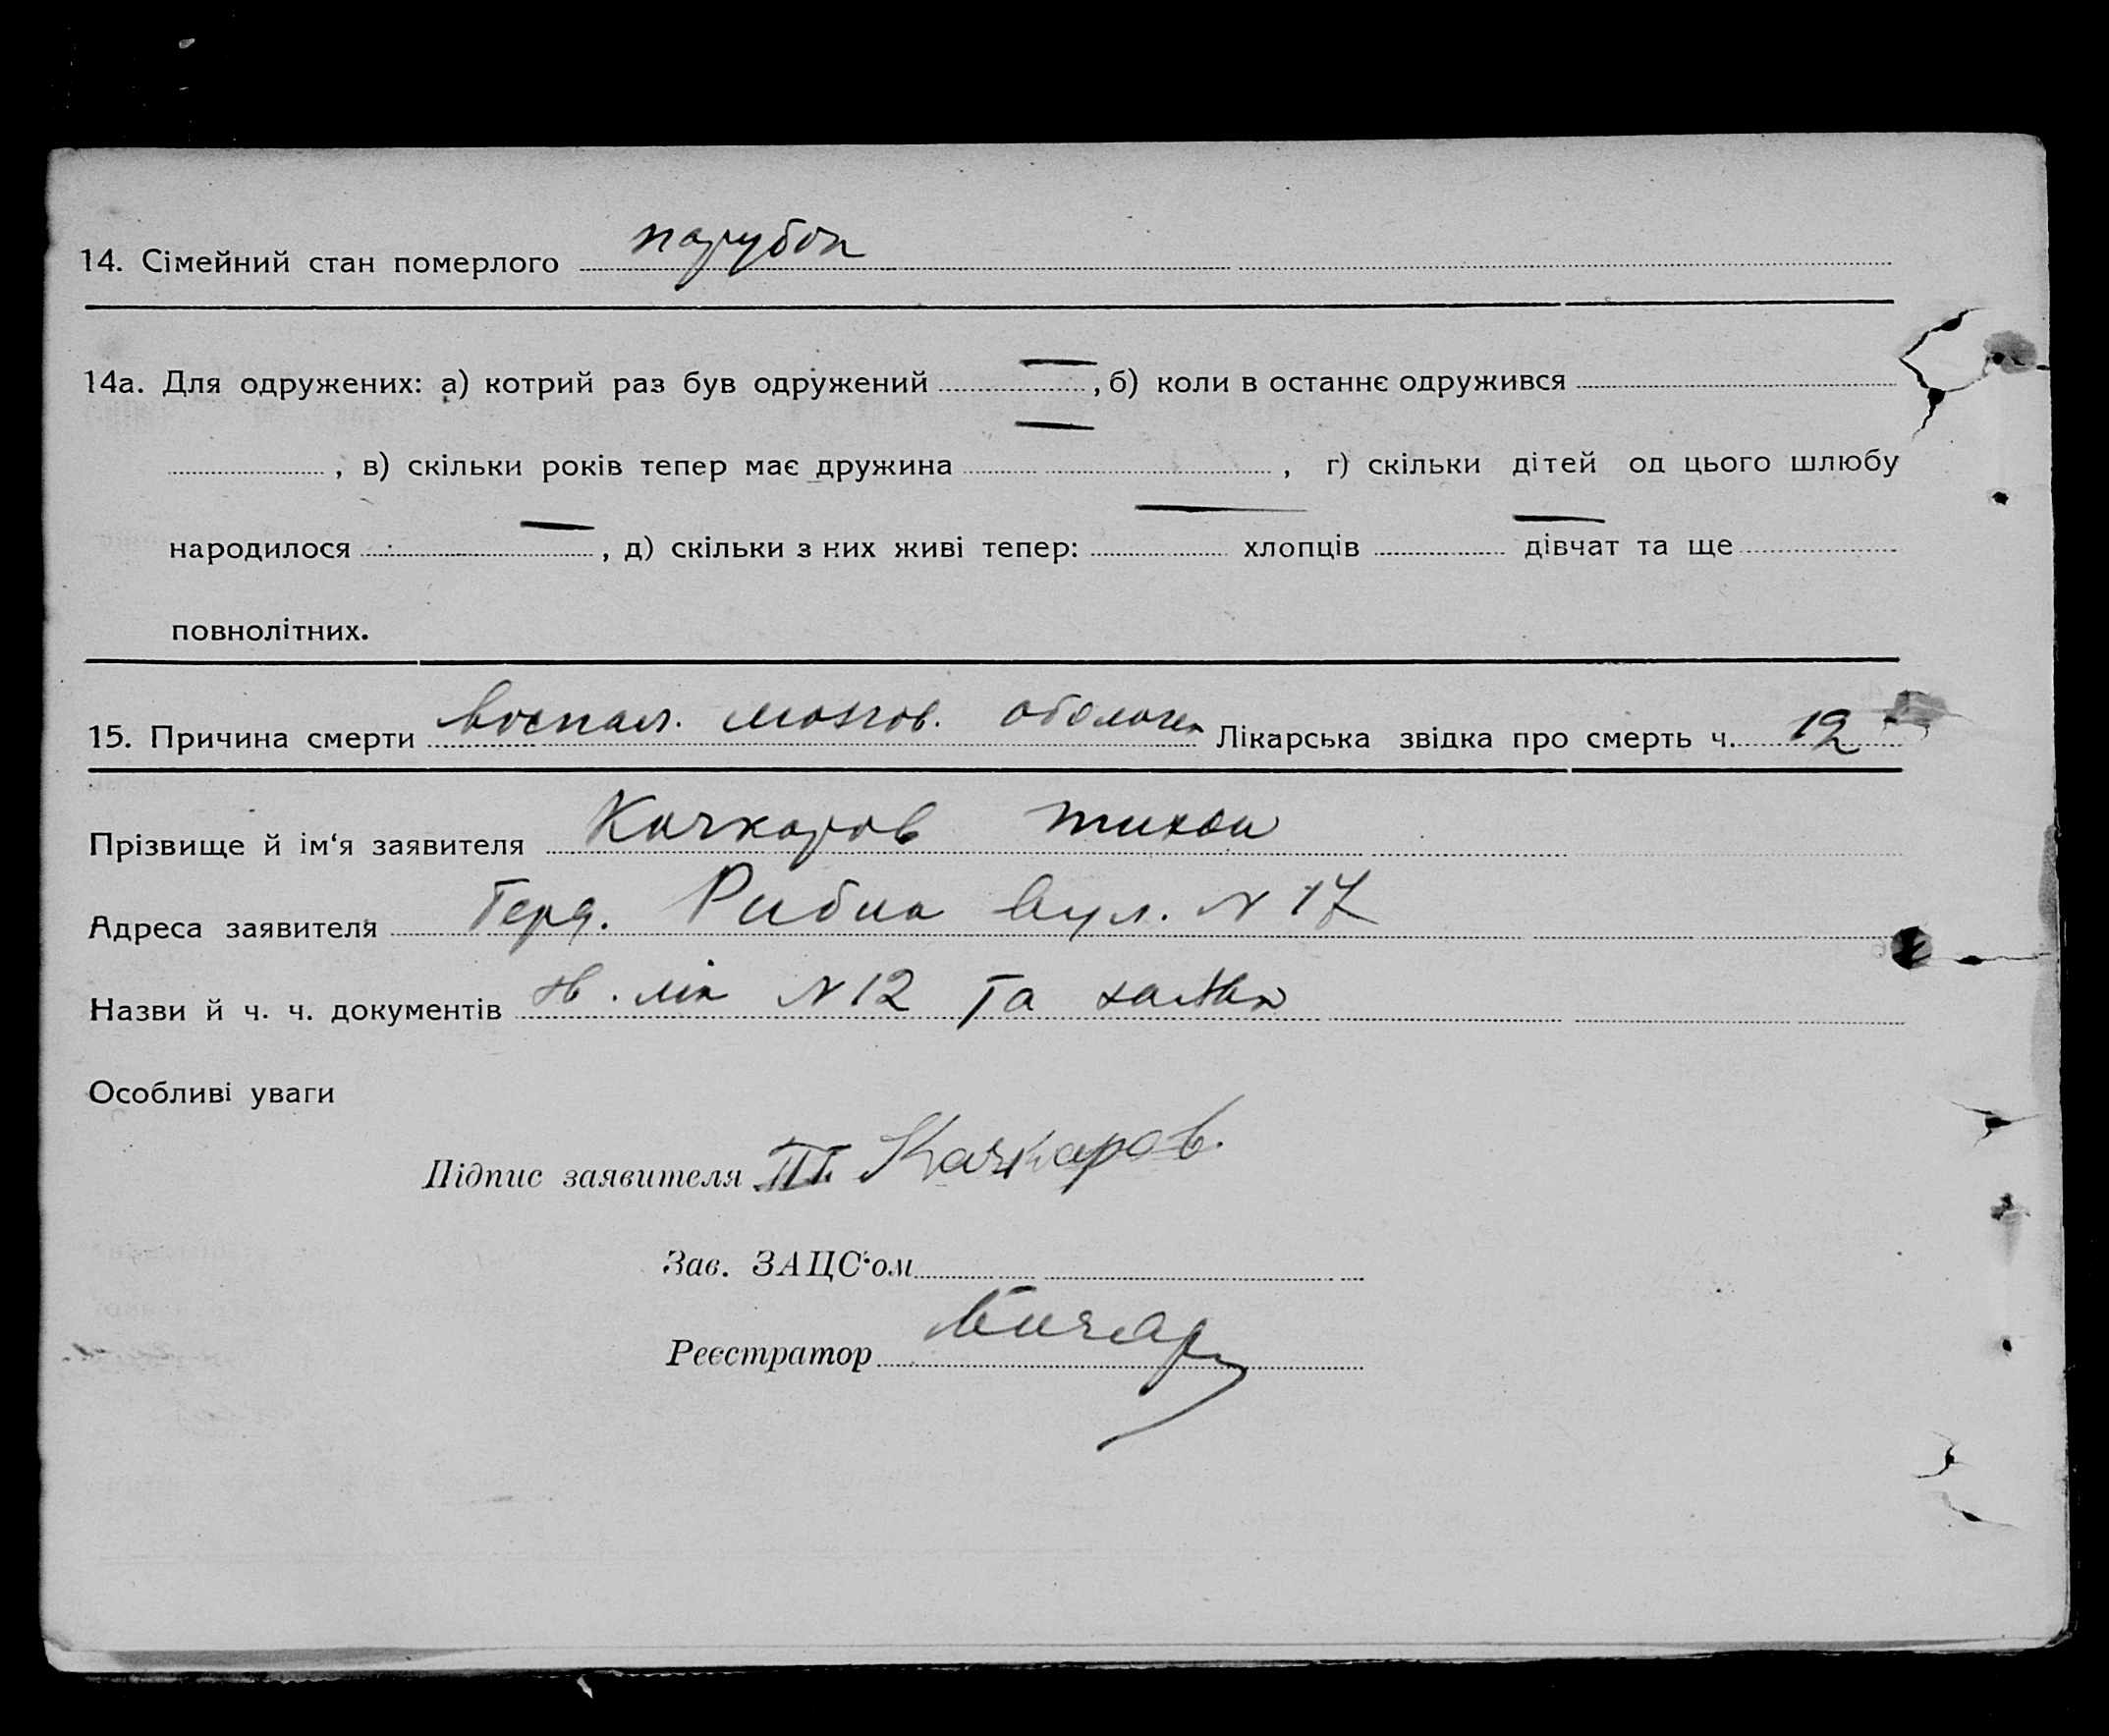 14. Сімейний стан померлого парубок
14а. Для одружених: а) котрий раз був одружений —, б) коли в останнє одружився
, в) скільки років тепер має дружина —, г) скільки дітей од цього шлюбу
народилося —, д) скільки з них живі тепер: — хлопців — дівчат та ще
повнолітних.
15. Причина смерти воспал. мозгов. оболочек Лікарська звідка про смерть ч. 12
Прізвище й ім‘я заявителя Качкаров Тихон
Адреса заявителя Рибна вул. N 17
Назви й ч. ч. документів лік N 12 та заява
Особливі уваги
Підпис заявителя Качкаров.
Зав. ЗАЦС‘ом
Реєстратор